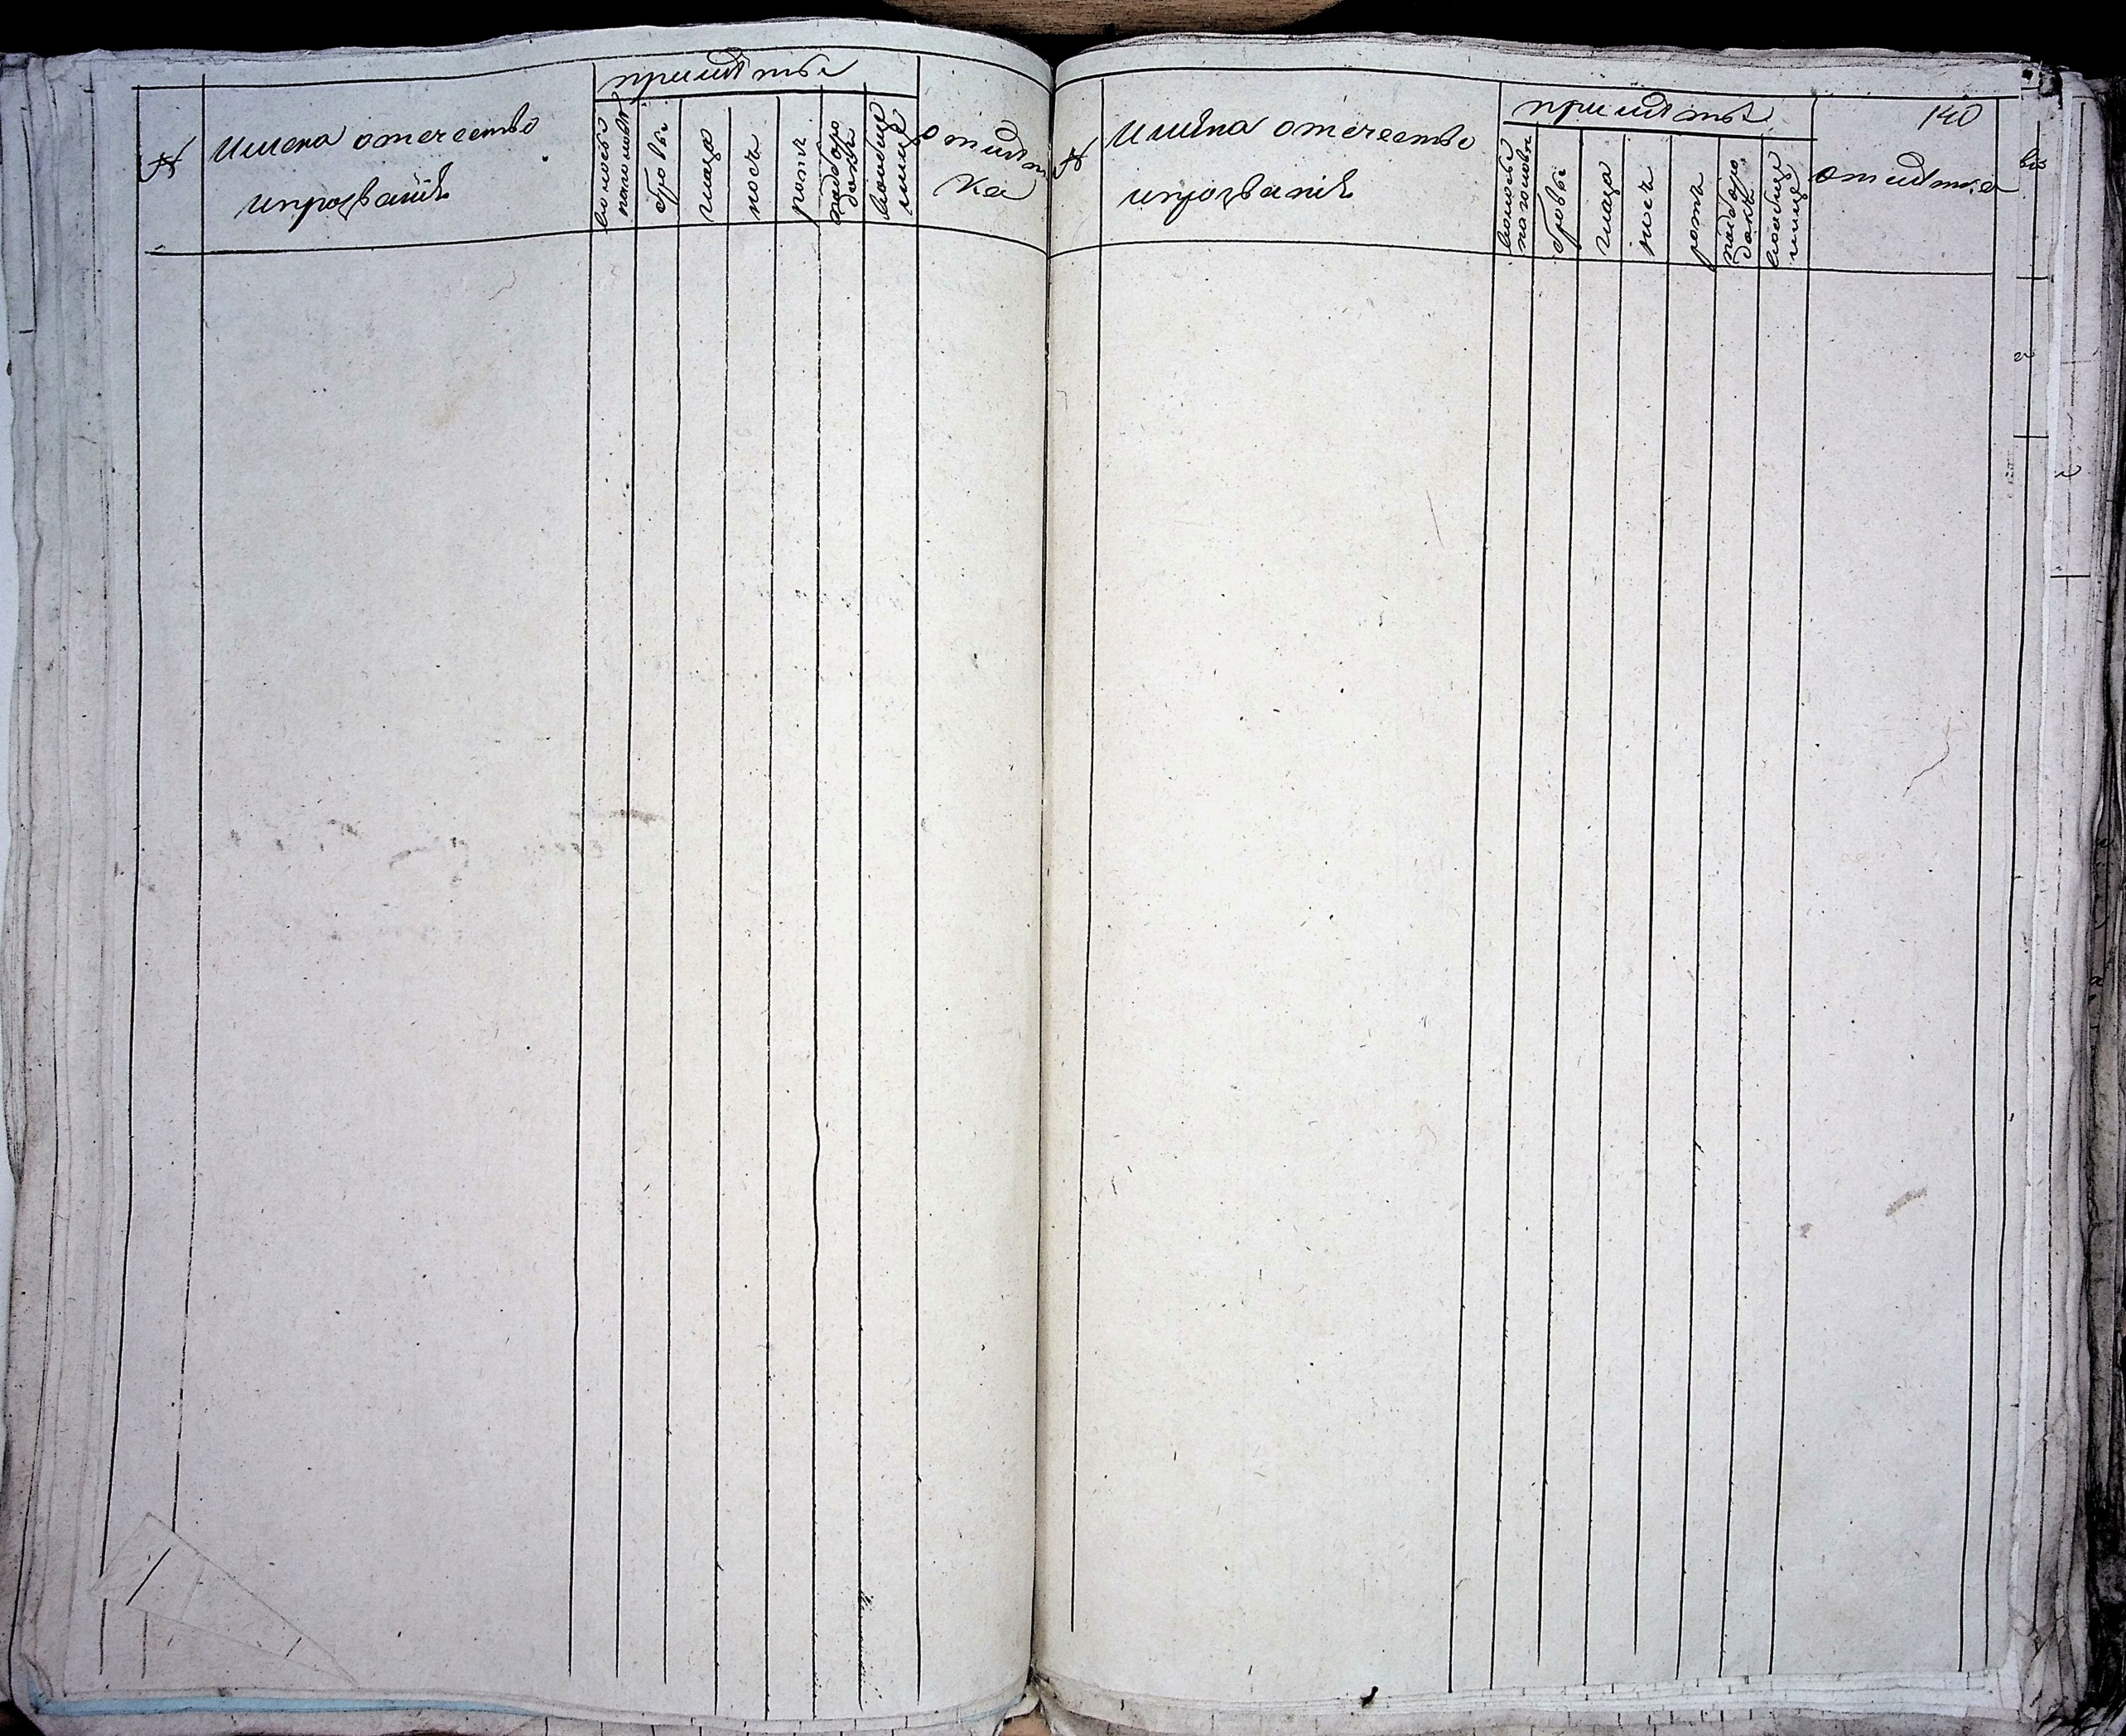 №
имена отечество
ипрозваніѣ
приметы
волосы
наголовѣ
бровы
глаза
носъ
ротъ
подборо
докъ
вообще
лице
отмет
ка
140
№
имена отечество
ипрозваніѣ
приметы
волосы
наголовѣ
бровы
глаза
носъ
ротъ
подборо
докъ
вообще
лице
отметка